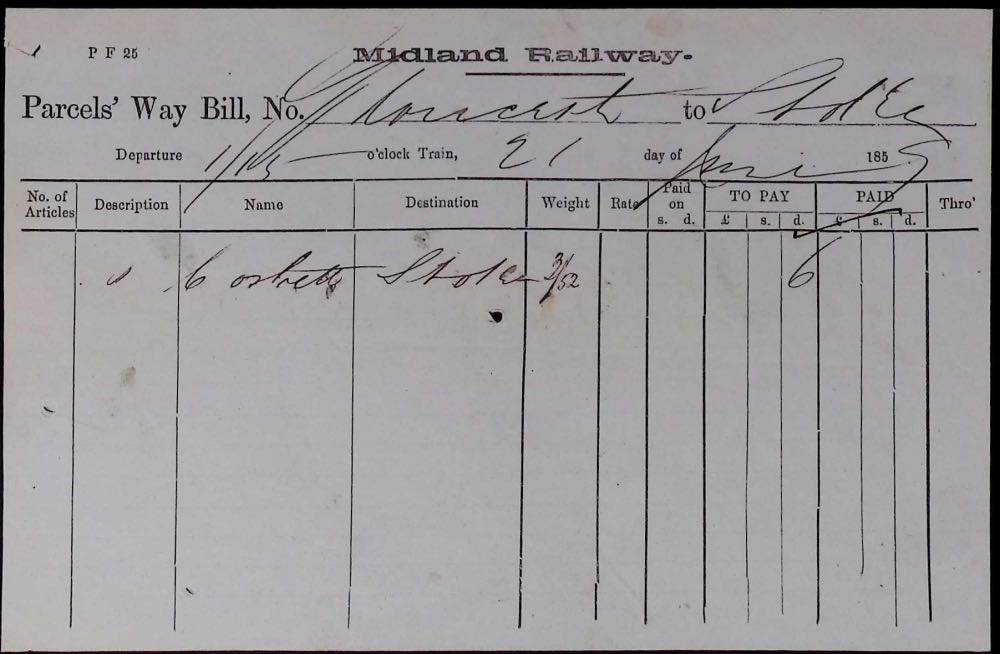 P F 25
Midland Railway.
Parcels' Way Bill, No. Gloucester to Stoke
Departure 1/15 o'clock Train, 21 day of June 1855
No. of Articles Description Name Destination Weight Rate Paid on s. d. TO PAY £ s. d. PAID £ s. d. Thro'
Corbett Stoke 6